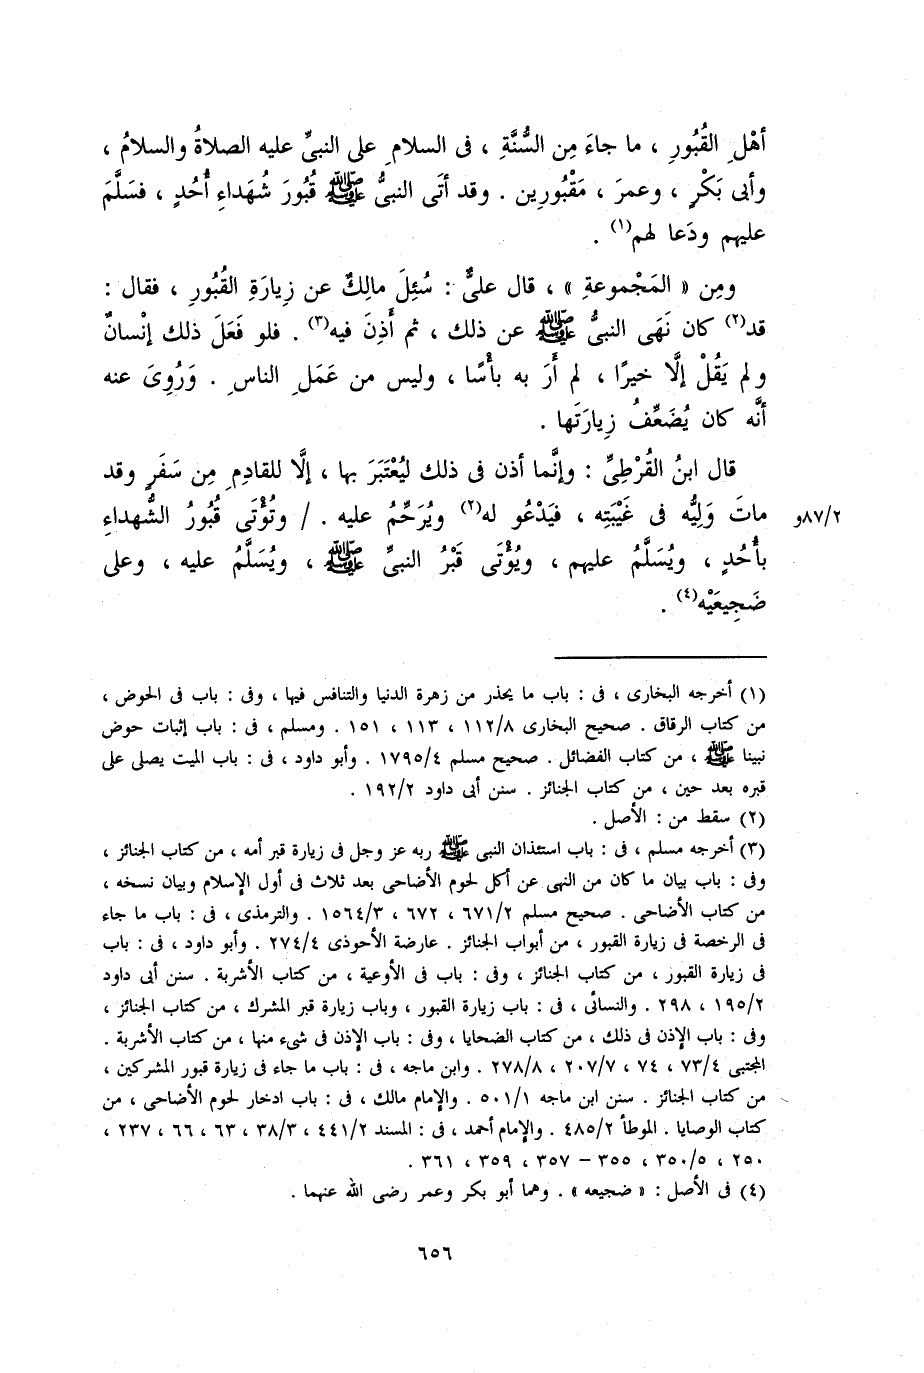 أهْلِ القُبُورِ ، ما جاءَ مِن السُّنَّةِ ، فى السلامِ على النبىِّ عليه الصلاةُ والسلامُ ،
وأبى بَكْرٍ ، وعمرَ ، مَقْبُورِين . وقد أتَى النبىُّ ﷺ قُبُورَ شُهَداءِ أُحُدٍ ، فسَلَّمَ
عليهم ودَعا لهم(١) .
ومِن « المَجْموعةِ » ، قال علىٌّ : سُئِلَ مالِكٌ عن زِيارَةِ القُبُورِ ، فقال :
قد(٢) كان نَهَى النبىُّ ﷺ عن ذلك ، ثم أَذِنَ فيه(٣) . فلو فَعَلَ ذلك إنْسانٌ
ولم يَقُلْ إلَّا خيرًا ، لم أَرَ به بأْسًا ، وليس من عَمَلِ الناسِ . وَرُوِىَ عنه
أنَّه كان يُضَعِّفُ زِيارَتَها .
قال ابنُ القُرْطِىِّ : وإنَّما أذن فى ذلك ليُعْتَبَرَ بها ، إلَّا للقادِمِ مِن سَفَرٍ وقد
ماتَ وَلِيُّه فى غَيْبَتِه ، فيَدْعُو له(٢) ويُرَحِّمُ عليه . / وتُؤْتَى قُبُورُ الشُّهداءِ
٨٧/٢و
بأُحُدٍ ، ويُسَلَّمُ عليهم ، ويُؤْتَى قَبْرُ النبىِّ ﷺ ، ويُسَلَّمُ عليه ، وعلى
ضَجِيعَيْه(٤) .
(١) أخرجه البخارى ، فى : باب ما يحذر من زهرة الدنيا والتنافس فيها ، وفى : باب فى الحوض ،
من كتاب الرقاق . صحيح البخارى ١١٢/٨ ، ١١٣ ، ١٥١ . ومسلم ، فى : باب إثبات حوض
نبينا ﷺ ، من كتاب الفضائل . صحيح مسلم ١٧٩٥/٤ . وأبو داود ، فى : باب الميت يصلى على
قبره بعد حين ، من كتاب الجنائز . سنن أبى داود ١٩٢/٢ .
(٢) سقط من : الأصل .
(٣) أخرجه مسلم ، فى : باب استئذان النبى ﷺ ربه عز وجل فى زيارة قبر أمه ، من كتاب الجنائز ،
وفى : باب بيان ما كان من النهى عن أكل لحوم الأضاحى بعد ثلاث فى أول الإسلام وبيان نسخه ،
من كتاب الأضاحى . صحيح مسلم ٦٧١/٢ ، ٦٧٢ ، ١٥٦٤/٣ . والترمذى ، فى : باب ما جاء
فى الرخصة فى زيارة القبور ، من أبواب الجنائز . عارضة الأحوذى ٢٧٤/٤ . وأبو داود ، فى : باب
فى زيارة القبور ، من كتاب الجنائز ، وفى : باب فى الأوعية ، من كتاب الأشربة . سنن أبى داود
١٩٥/٢ ، ٢٩٨ . والنسائى ، فى : باب زيارة القبور ، وباب زيارة قبر المشرك ، من كتاب الجنائز ،
وفى : باب الإذن فى ذلك ، من كتاب الضحايا ، وفى : باب الإذن فى شىء منها ، من كتاب الأشربة .
المجتبى ٧٣/٤ ، ٧٤ ، ٢٠٧/٧ ، ٢٧٨/٨ . وابن ماجه ، فى : باب ما جاء فى زيارة قبور المشركين ،
من كتاب الجنائز . سنن ابن ماجه ٥٠١/١ . والإمام مالك ، فى : باب ادخار لحوم الأضاحى ، من
كتاب الوصايا . الموطأ ٤٨٥/٢ . والإمام أحمد ، فى : المسند ٤٤١/٢ ، ٣٨/٣ ، ٦٣ ، ٦٦ ، ٢٣٧ ،
٢٥٠ ، ٣٥٠/٥ ، ٣٥٥ – ٣٥٧ ، ٣٥٩ ، ٣٦١ .
(٤) فى الأصل : « ضجيعه » . وهما أبو بكر وعمر رضى الله عنهما .
٦٥٦